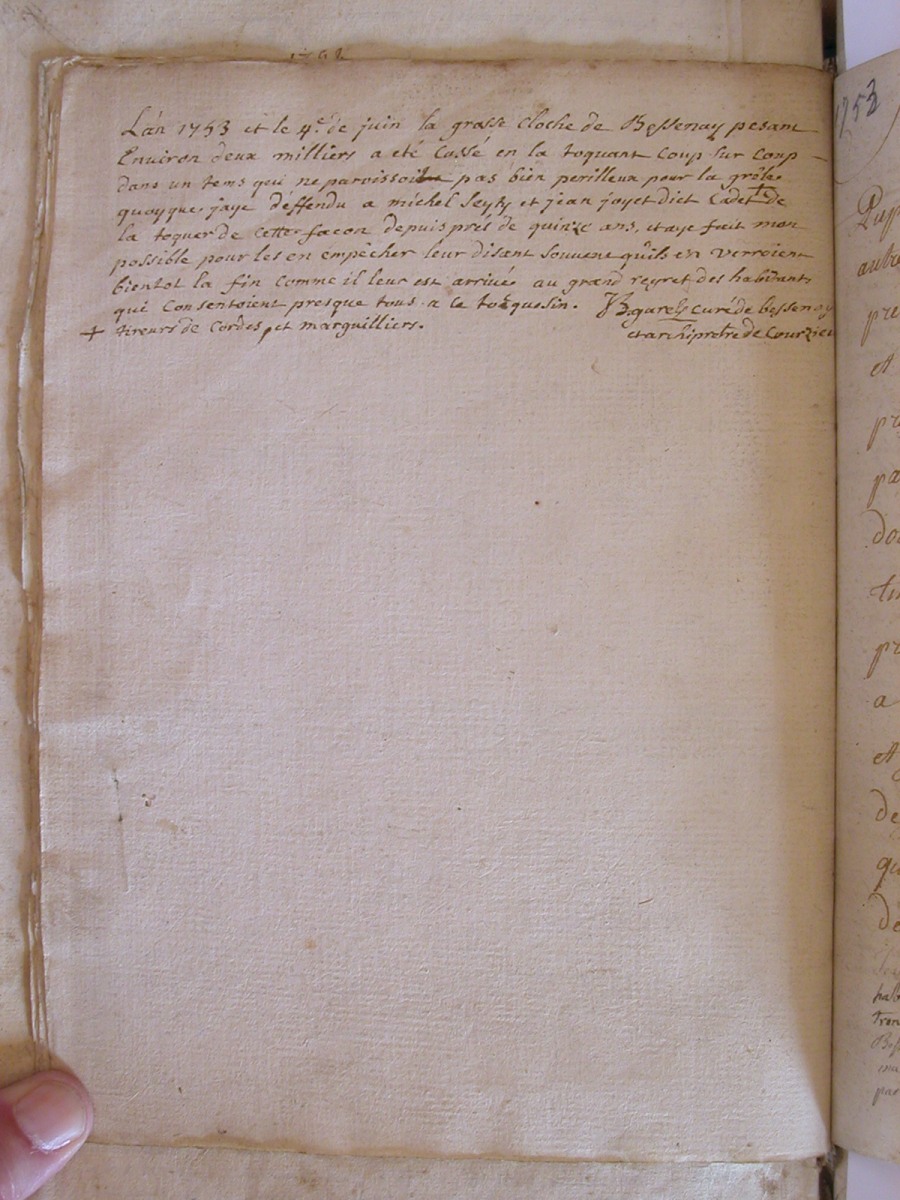 1253
L'an 1753 et le 4e. de juin la grosse cloche de Bessenay pesant
Environ deux milliers a eté Cassé en la toquant Coup sur Coup
dans un tems qui ne paroissoit pas bien perilleux pour la grêle
quoyque j'aye déffendu a michel Seyty et jean joyet dict Cadet + de
la toquer de Cette facon depuis pres de quinze ans, et aye fait mon
possible pour les en empêcher leur disant souvent qu'ils en verroient
bientot la fin comme il leur est arrivée au grand regret des habitants
qui Consentoient presque tous a ce toquesin.
curé de bessenay
+ tireurs de Cordes et marguilliers.
et archipretre de Courzieu